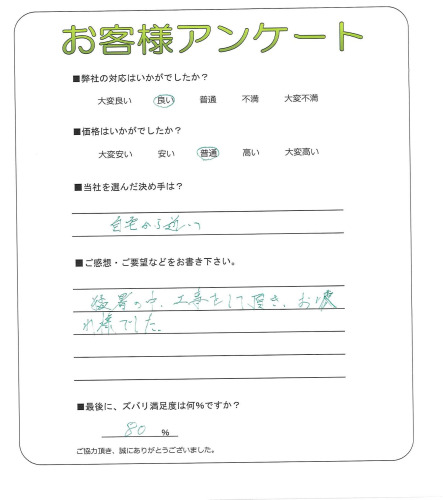 お客様アンケート
■弊社の対応はいかがでしたか？
大変良い 良い 普通 不満 大変不満
■価格はいかがでしたか？
大変安い 安い 普通 高い 大変高い
■当社を選んだ決め手は？
自宅から近い
■ご感想・ご要望などをお書き下さい。
猛暑の中、工事をして頂き、お疲
れ様でした。
■最後に、ズバリ満足度は何%ですか？
80 %
ご協力頂き、誠にありがとうございました。